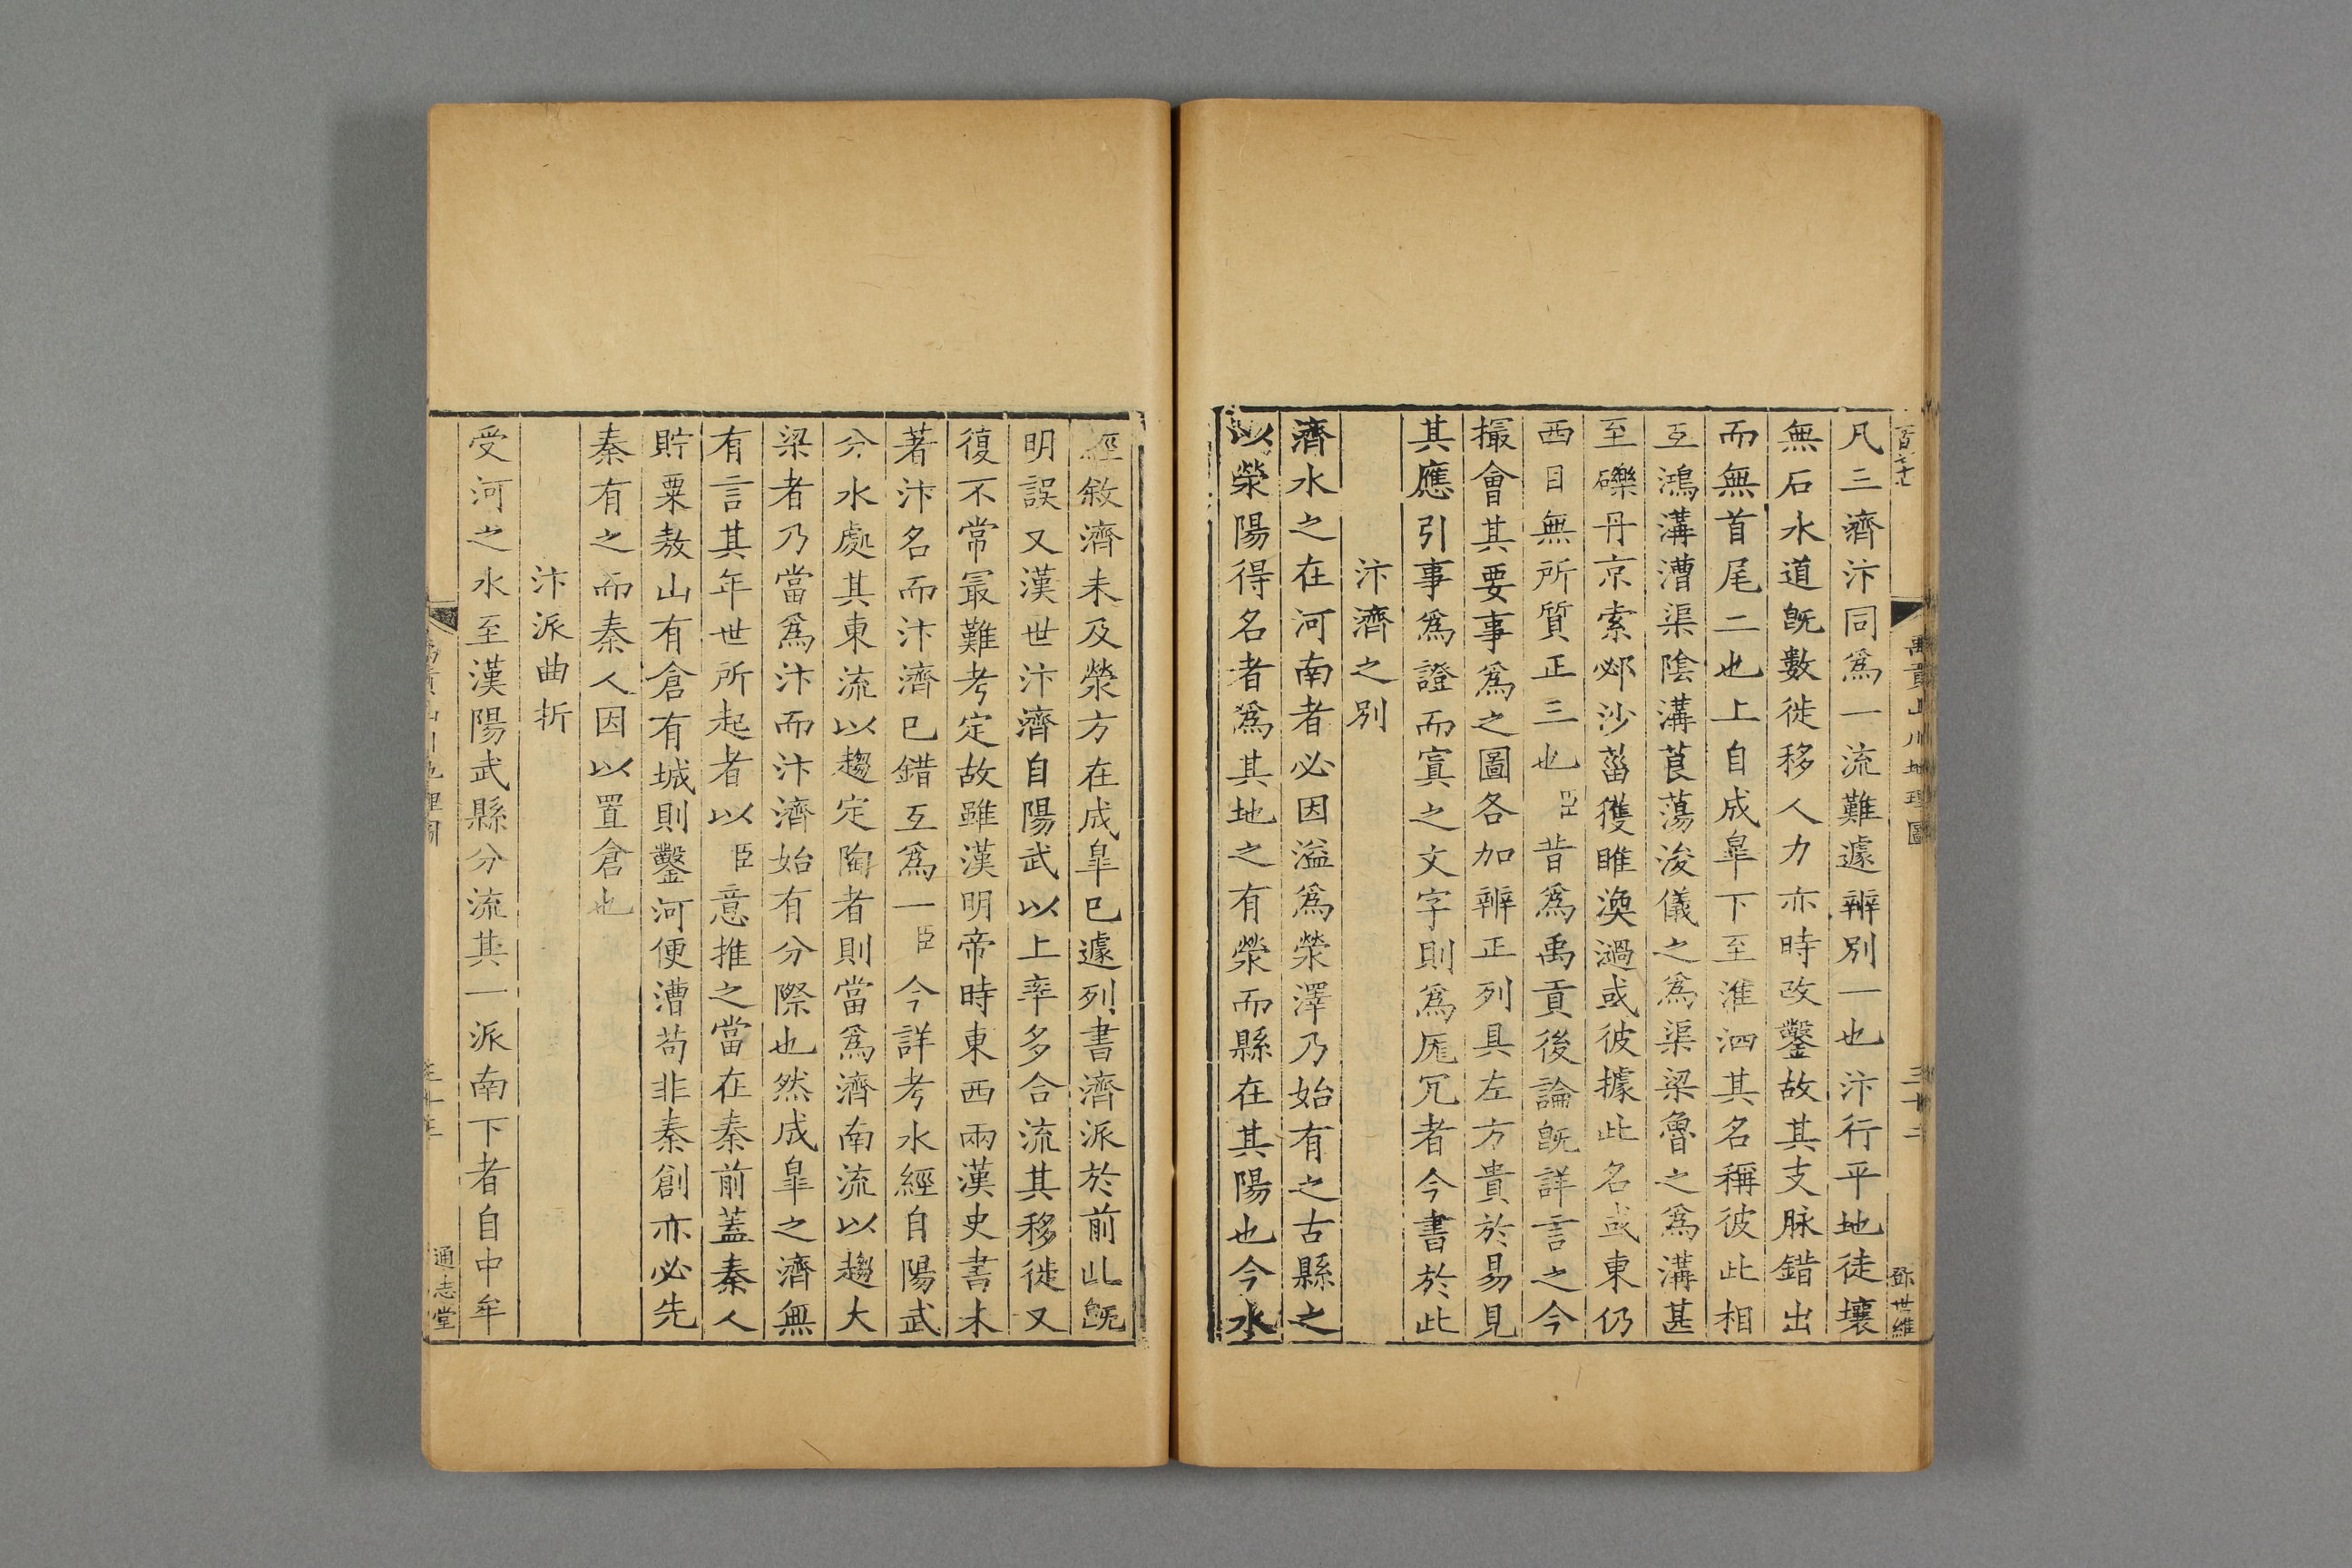 禹貢山川地理圖
三十二
鄧世維
凡三濟汴同爲一流難遽辨別一也汴行平地徒壤
無石水道旣數徙移人力亦時改鑿故其支脉錯出
而無首尾二也上自成臯下至淮泗其名稱彼此相
互鴻溝漕渠陰溝莨蕩浚儀之爲渠梁魯之爲溝甚
至礫丹京索邲沙菑獲睢渙濄或彼據此名或東仍
西目無所質正三也臣昔爲禹貢後論旣詳言之今
撮會其要事爲之圖各加辨正列具左方貴於易見
其應引事爲證而寘之文字則爲厖冗者今書於此
汴濟之別
濟水之在河南者必因溢爲滎澤乃始有之古縣之
以滎陽得名者爲其地之有滎而縣在其陽也今水
經敘濟未及滎方在成臯巳遽列書濟派於前此旣
明誤又漢世汴濟自陽武以上率多合流其移徙又
復不常最難考定故雖漢明帝時東西兩漢史書未
著汴名而汴濟已錯互爲一臣今詳考水經自陽武
分水處其東流以趨定陶者則當爲濟南流以趨大
梁者乃當爲汴而汴濟始有分際也然成臯之濟無
有言其年世所起者以臣意推之當在秦前蓋秦人
貯粟敖山有倉有城則鑿河便漕苟非秦創亦必先
秦有之而秦人因以置倉也
汴派曲折
受河之水至漢陽武縣分流其一派南下者自中牟
通志堂